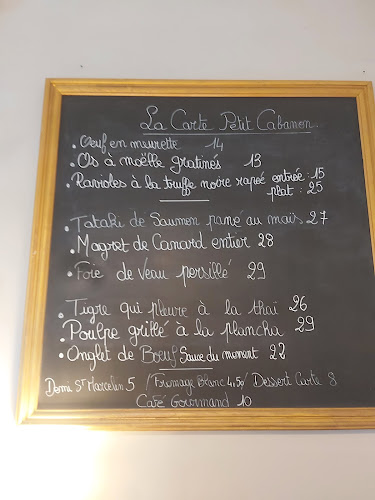 La Carte Petit Cabanon.
• Oeuf en meurette 14
• Os à moëlle gratinés 13
• Ravioles à la truffe noire rapeé entrée : 15
plat : 25
• Tataki de Saumon pané au maïs 27
• Magret de Canard entier 28
• Foie de veau persillé 29
• Tigre qui pleure à la thaï 26
• Poulpe grillé à la plancha 29
• Onglet de Boeuf Sauce du moment 22
Demi St Marcelin 5 / Fromage Blanc 4,50 / Dessert Carte 8
Café Gourmand 10